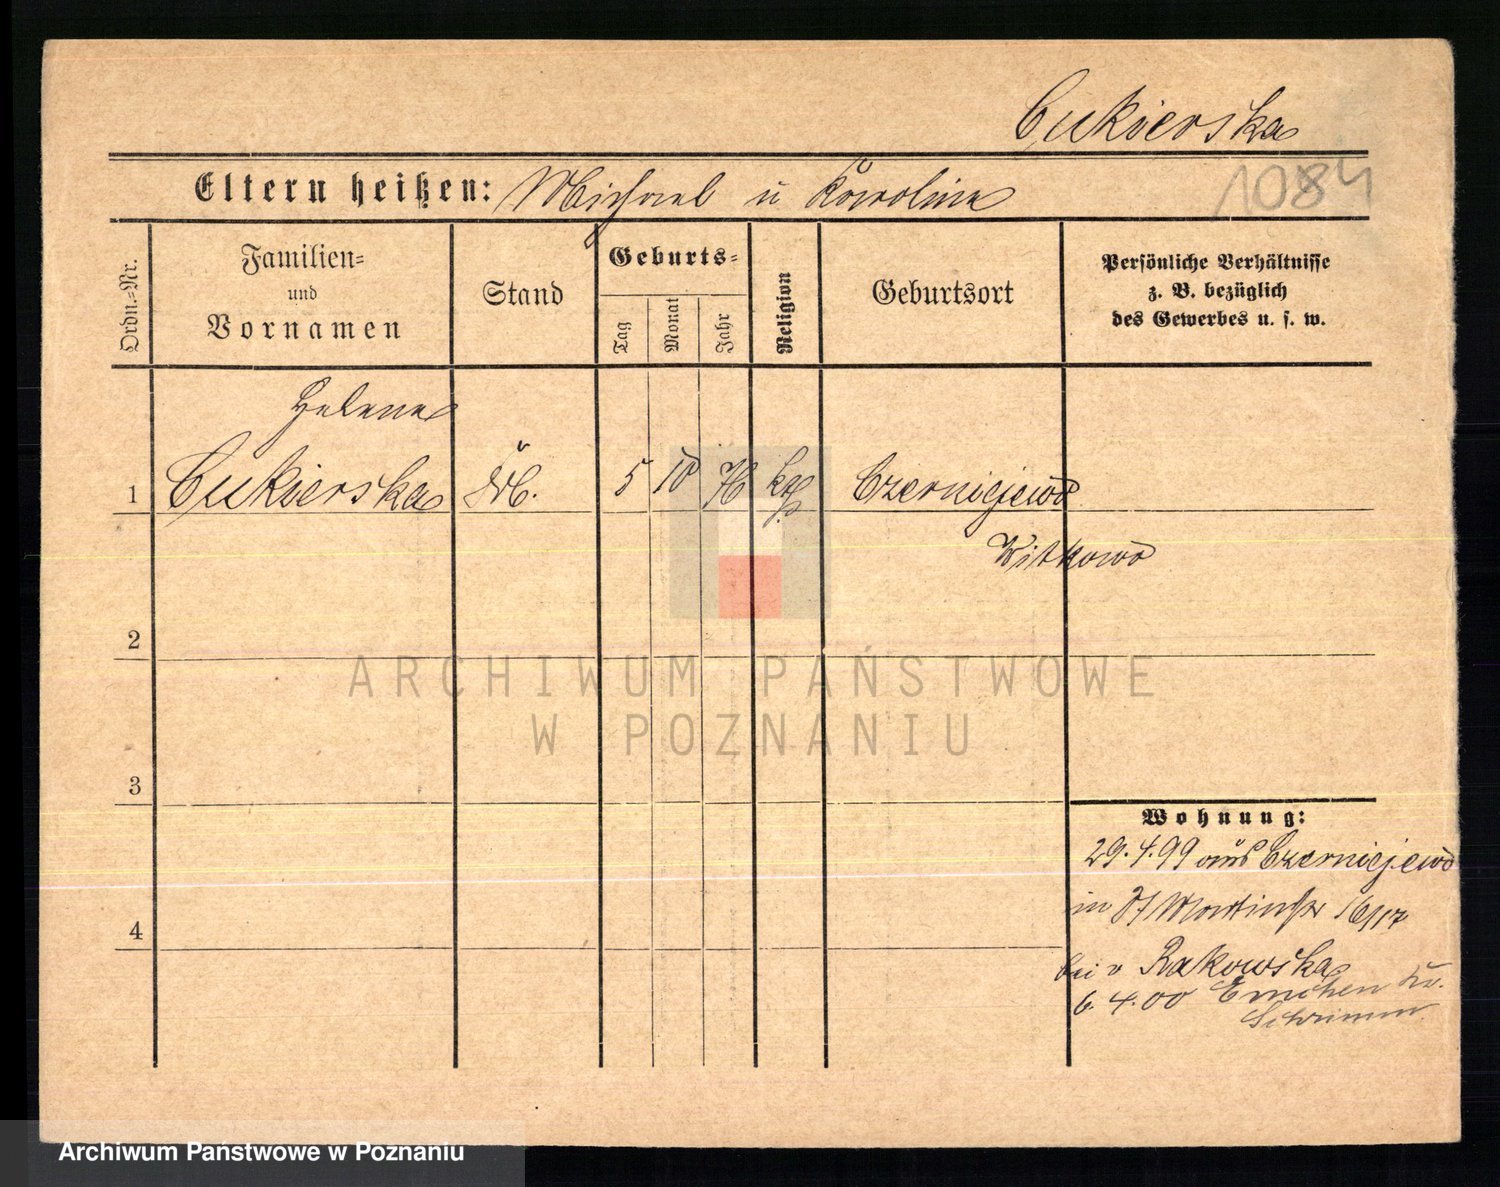 Cukierska
1084
Eltern heißen: Michael u Karoline
Ordn.=Nr.
Familien=
und
Vornamen
Stand
Geburts=
Tag
Monat
Jahr
Religion
Geburtsort
Persönliche Verhältnisse
z. B. bezüglich
des Gewerbes u. s. w.
Helene
1 Cukierska 5 10 76 Czerniejewo
Witkowo
2
ARCHIWUM PAŃSTWOWE
W POZNANIU
3
Wohnung:
29.4.99 aus Czerniejewo
in St Martinstr 16/17
4
bei v Rakowska
6.4.00 Emchen Kr.
Schrimm
Archiwum Państwowe w Poznaniu